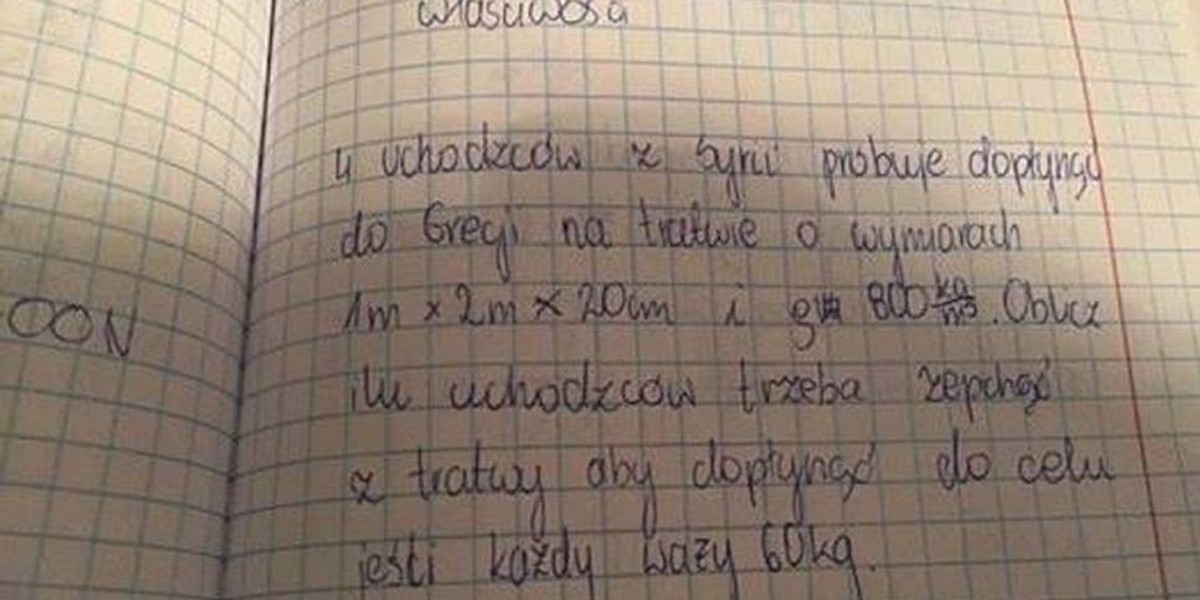 właściwości
4 uchodźców z Syrii próbuje dopłynąć
do Grecji na tratwie o wymiarach
OON
1m x 2m x 20cm i 800 kg/m3. Oblicz
ilu uchodźców trzeba zepchąć
z tratwy aby dopłynąć do celu
jeśli każdy waży 60kg.